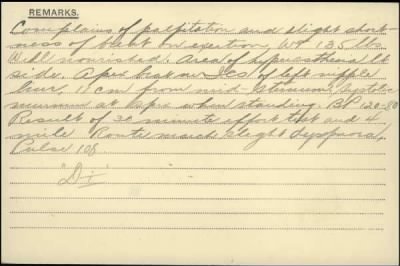 REMARKS.
Complains of palpitation and slight short-
ness of breat on exertion, WT 135 lbs
Well nourished. Area of hyperasthenia lt
side. Apex beat on ICS of left nipple
line, 11 cm from mid-sternum. Systolic
murmur at apex when standing. BP 120-80
Result of 30 minute effort test and 4
mile Route march slight dyspnoea,
Pulse 108